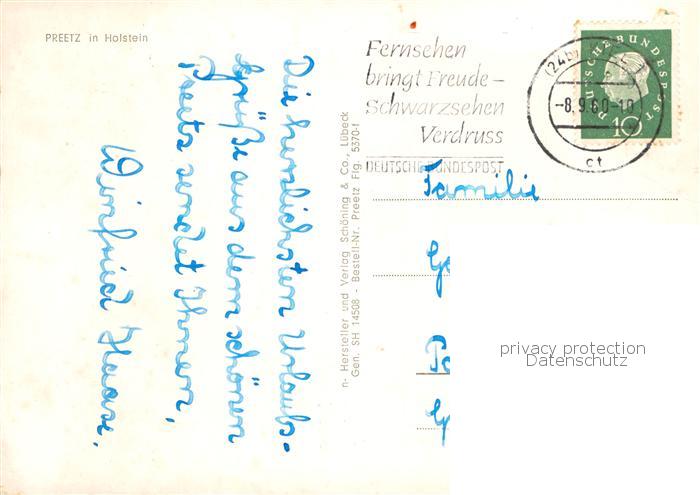 PREETZ in Holstein
Die herzlichsten Urlaubs-
grüße aus dem schönen
Preetz sendet Ihnen,
Winfried Haase.
n- Hersteller und Verlag Schöning & Co., Lübeck
Gen. SH 14508 - Bestell-Nr. Preetz Flg. 5370-f
Fernsehen
bringt Freude -
Schwarzsehen
Verdruss
DEUTSCHE BUNDESPOST
(24b)
-8.9.60-10
ct
DEUTSCHE BUNDESPOST
10
Familie
privacy protection
Datenschutz